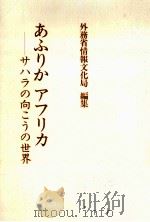 外務省情報文化局 編集
あふりか アフリカ
——サハラの向こうの世界